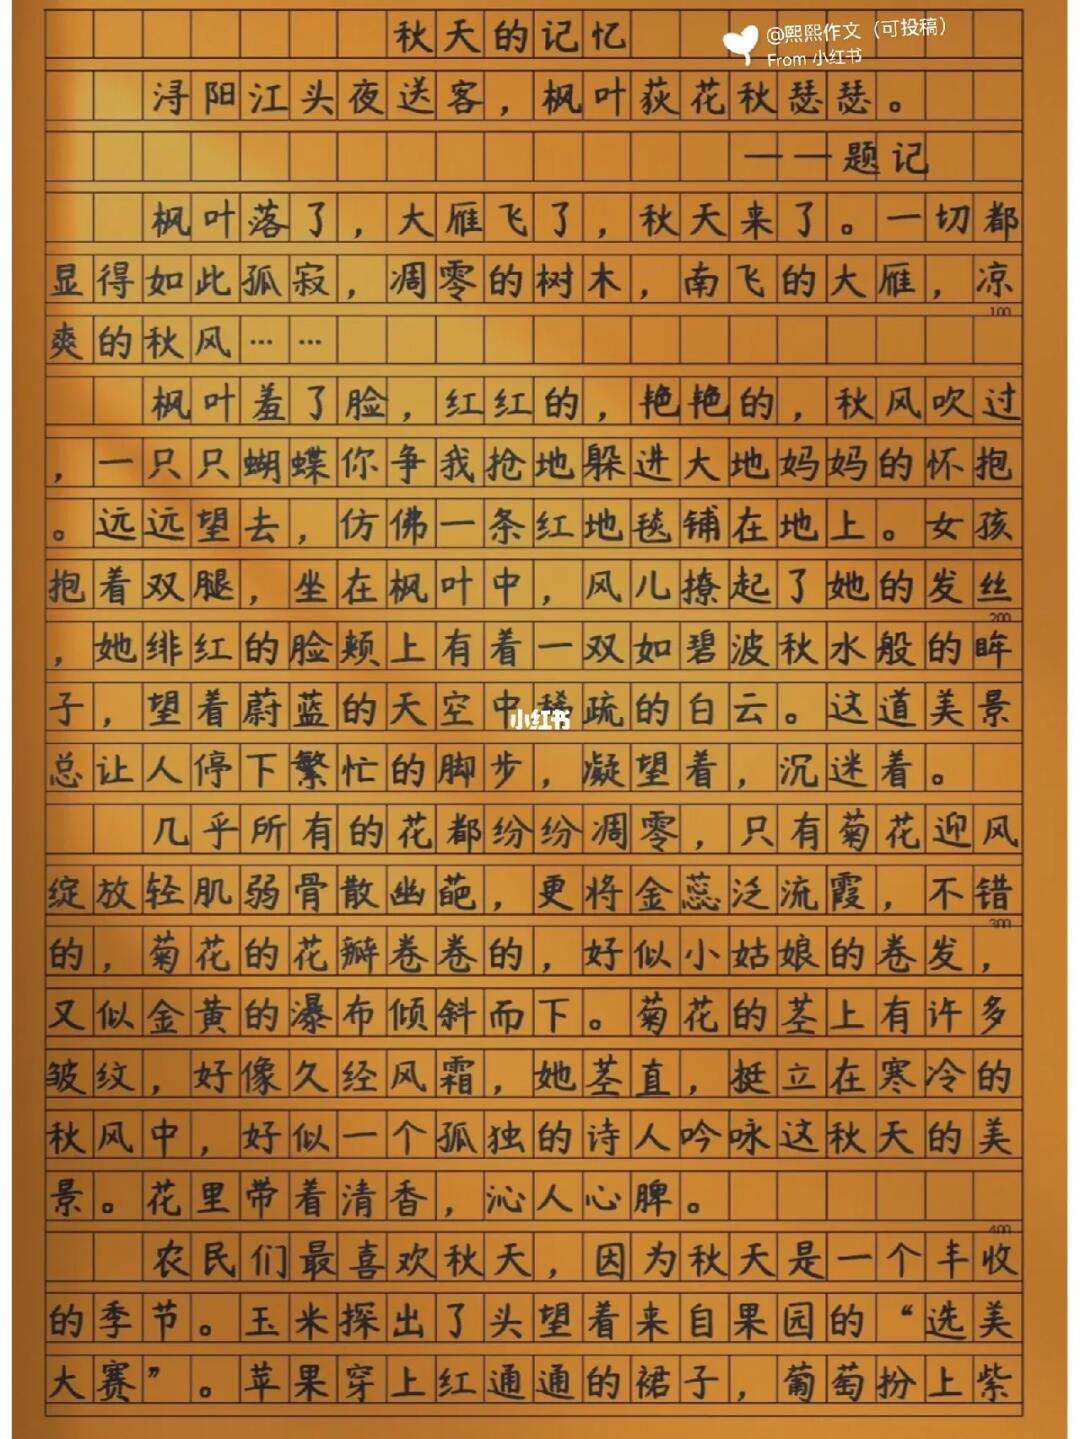 秋天的记忆
@熙熙作文（可投稿）
From 小红书
浔阳江头夜送客，枫叶荻花秋瑟瑟。
——题记
枫叶落了，大雁飞了，秋天来了。一切都
显得如此孤寂，凋零的树木，南飞的大雁，凉
100
爽的秋风……
枫叶羞了脸，红红的，艳艳的，秋风吹过
，一只只蝴蝶你争我抢地躲进大地妈妈的怀抱
。远远望去，仿佛一条红地毯铺在地上。女孩
抱着双腿，坐在枫叶中，风儿撩起了她的发丝
200
，她绯红的脸颊上有着一双如碧波秋水般的眸
子，望着蔚蓝的天空中稀疏的白云。这道美景
小红书
总让人停下繁忙的脚步，凝望着，沉迷着。
几乎所有的花都纷纷凋零，只有菊花迎风
绽放轻肌弱骨散幽葩，更将金蕊泛流霞，不错
300
的，菊花的花瓣卷卷的，好似小姑娘的卷发，
又似金黄的瀑布倾斜而下。菊花的茎上有许多
皱纹，好像久经风霜，她茎直，挺立在寒冷的
秋风中，好似一个孤独的诗人吟咏这秋天的美
景。花里带着清香，沁人心脾。
400
农民们最喜欢秋天，因为秋天是一个丰收
的季节。玉米探出了头望着来自果园的“选美
大赛”。苹果穿上红通通的裙子，葡萄扮上紫